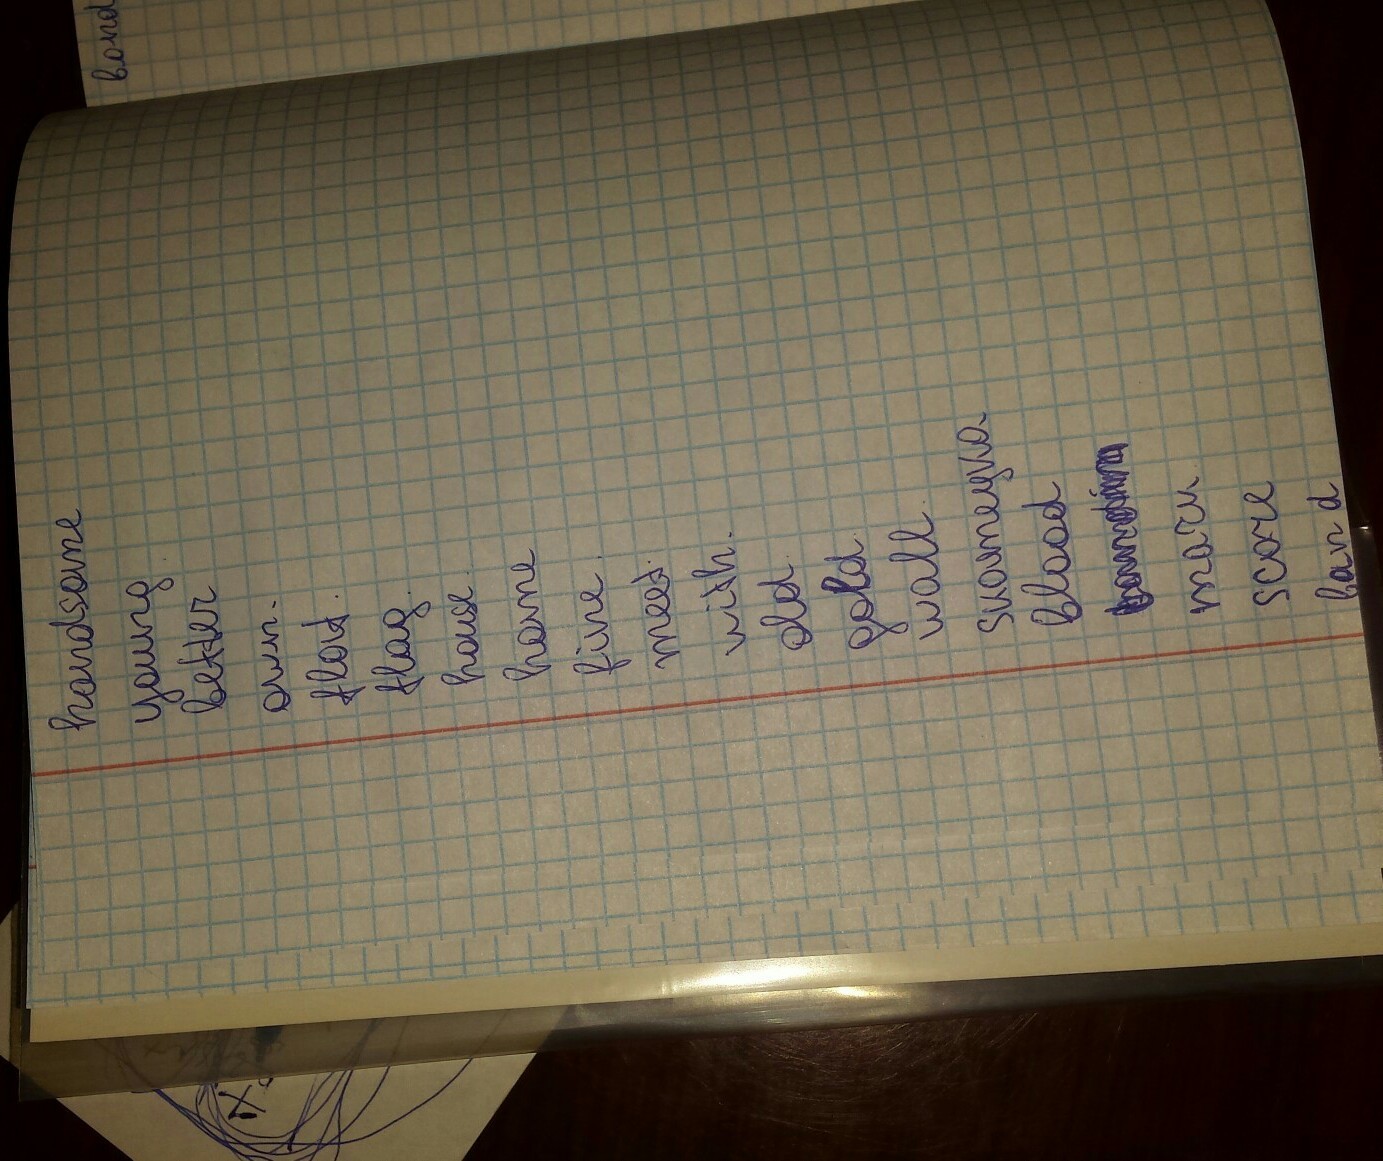 handsome
young.
better
own.
flat.
flag.
house.
home
fine.
meet.
with.
old.
gold.
wall.
blood
score
band